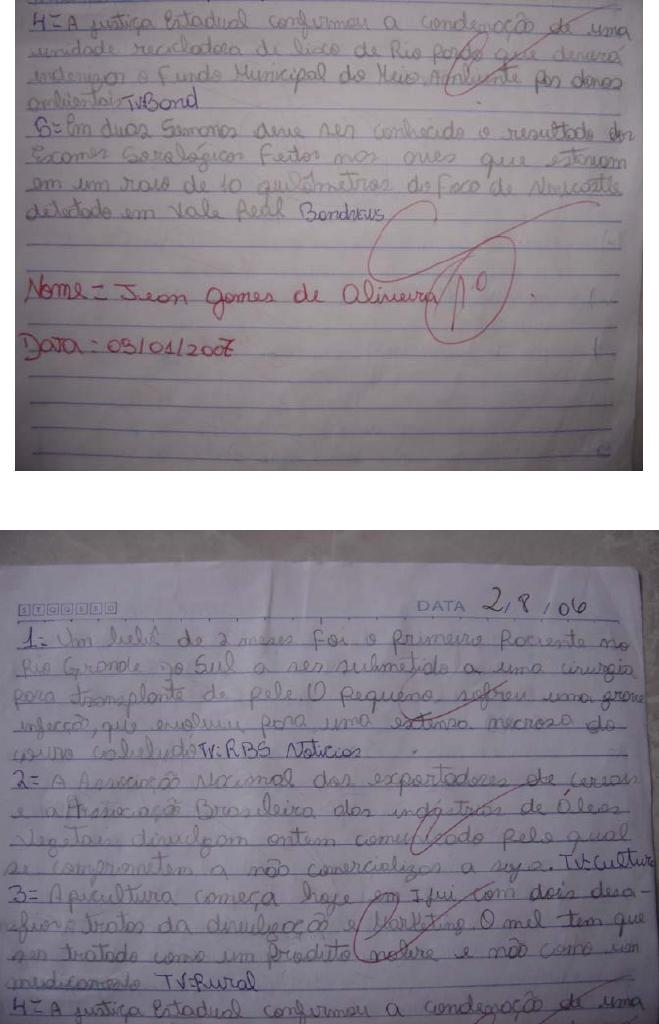 4= A justiça Estadual confirmou a condenação de uma
unidade recicladora de lixo de Rio pardo que deverá
indenizar o Fundo Municipal do Meio Ambiente por danos
ambientais TV:Bond
6= Em duas Semanas deve ser conhecido o resultado dos
Exames Sorológicos Feitos nas aves que estavam
em um raio de 10 quilômetros do foco de Newcastle
detectado em Vale Real Bondnews
Nome = Jeon Gomes de Oliveira
Data: 09/01/2007
S T Q Q S S D
DATA 2/8/06
1= Um bebê de 2 meses foi o primeiro Paciente no
Rio Grande do Sul a ser submetido a uma cirurgia
para transplante de pele. O pequeno sofreu uma grave
infecção, que evoluiu para uma extensa necrose do
couro cabeludo TV:RBS Noticias
2= A Associação Nacional dos exportadores de Cereais
e a Associação Brasileira das indústrias de Óleos
Vegetais divulgam ontem comunicado pelo qual
se comprometem a não comercializar a soja. TV:Cultura
3= Apicultura começa hoje em Ijui com dois desa-
fios tratos da divulgação e Marketing. O mel tem que
ser tratado como um produto nobre e não como um
medicamento TV:Rural
4= A justiça Estadual confirmou a condenação de uma